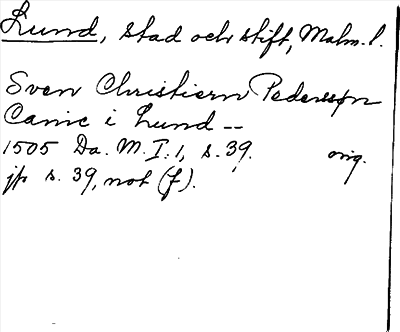 Lund, stad och stift, Malm. l.
Sven Christiern Pedersøn
Canic i Lund --
1505 Da. M. I. 1, s. 39. orig.
jfr s. 39, not (f).